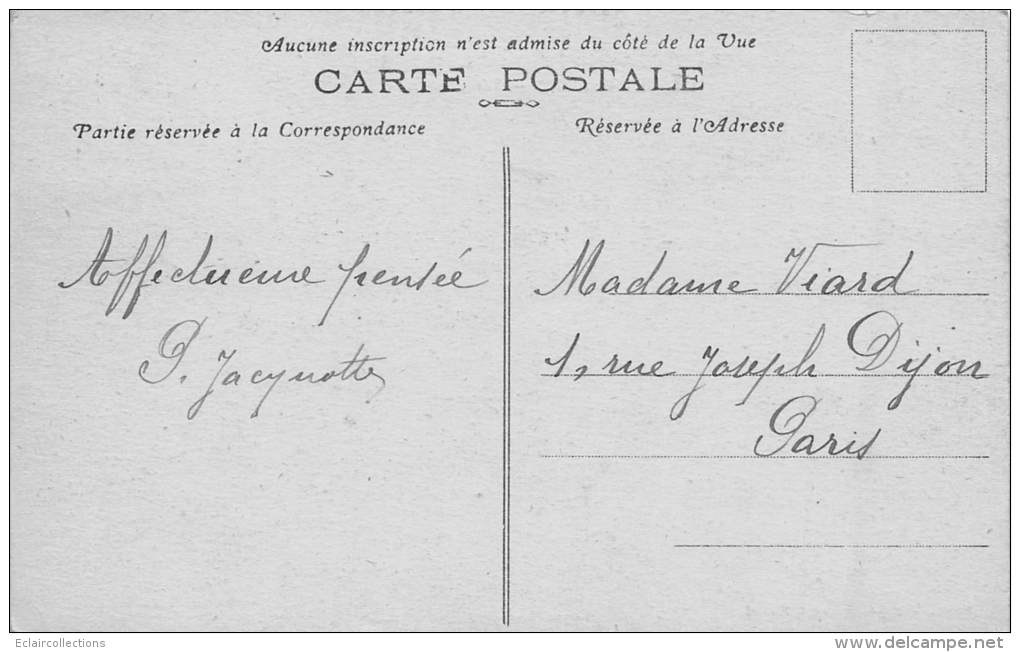 Aucune inscription n'est admise du côté de la Vue
CARTE POSTALE
Partie réservée à la Correspondance
Réservée à l'Adresse
Affectueuse pensée
P. Jacquotte
Madame Viard
1, rue Joseph Dijon
Paris
Eclaircollections
www.delcampe.net